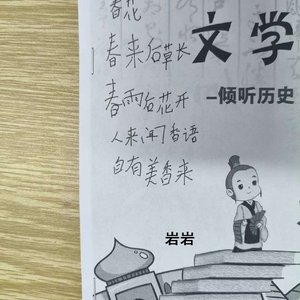 春花
春来后草长
春雨后花开
人来闻香语
自有美香来
文学
-倾听历史
岩岩